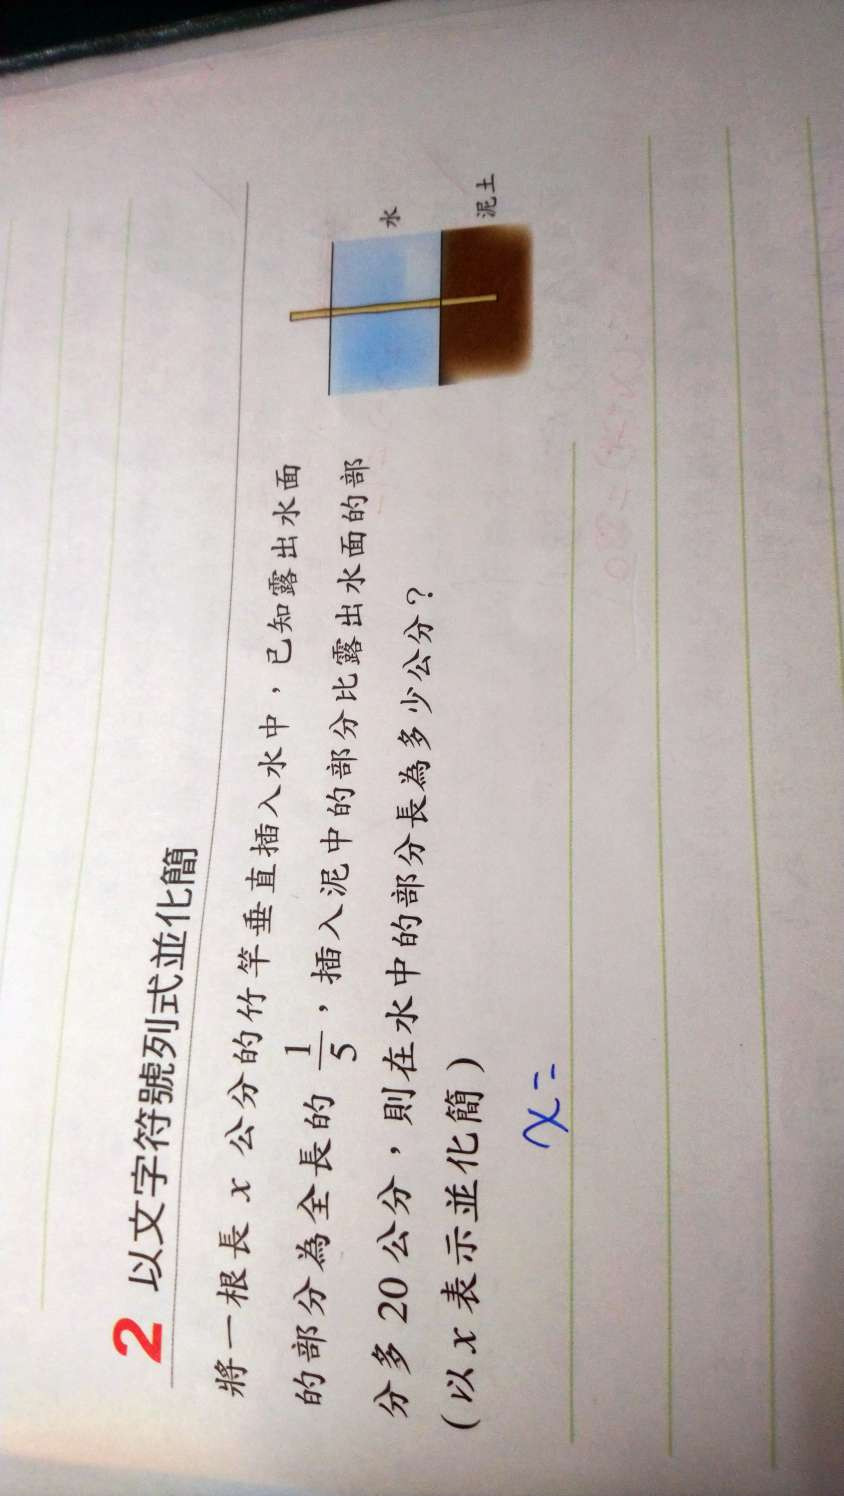 2 以文字符號列式並化簡
將一根長 x 公分的竹竿垂直插入水中，已知露出水面
的部分為全長的 1/5，插入泥中的部分比露出水面的部
分多 20 公分，則在水中的部分長為多少公分？
（以 x 表示並化簡）
水
泥土
x=